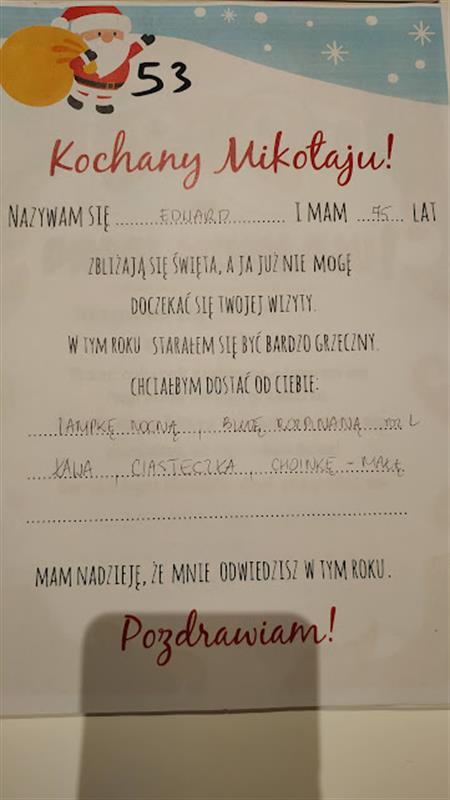 53
Kochany Mikołaju!
NAZYWAM SIĘ EDWARD I MAM LAT
ZBLIŻAJĄ SIĘ ŚWIĘTA, A JA JUŻ NIE MOGĘ
DOCZEKAĆ SIĘ TWOJEJ WIZYTY.
W TYM ROKU STARAŁEM SIĘ BYĆ BARDZO GRZECZNY.
CHCIAŁBYM DOSTAĆ OD CIEBIE:
LAMPKĘ NOCNĄ, BLUZĘ ROZPINANĄ roz L
CIASTECZKA, CHOINKĘ - MAŁĄ
MAM NADZIEJĘ, ŻE MNIE ODWIEDZISZ W TYM ROKU.
Pozdrawiam!